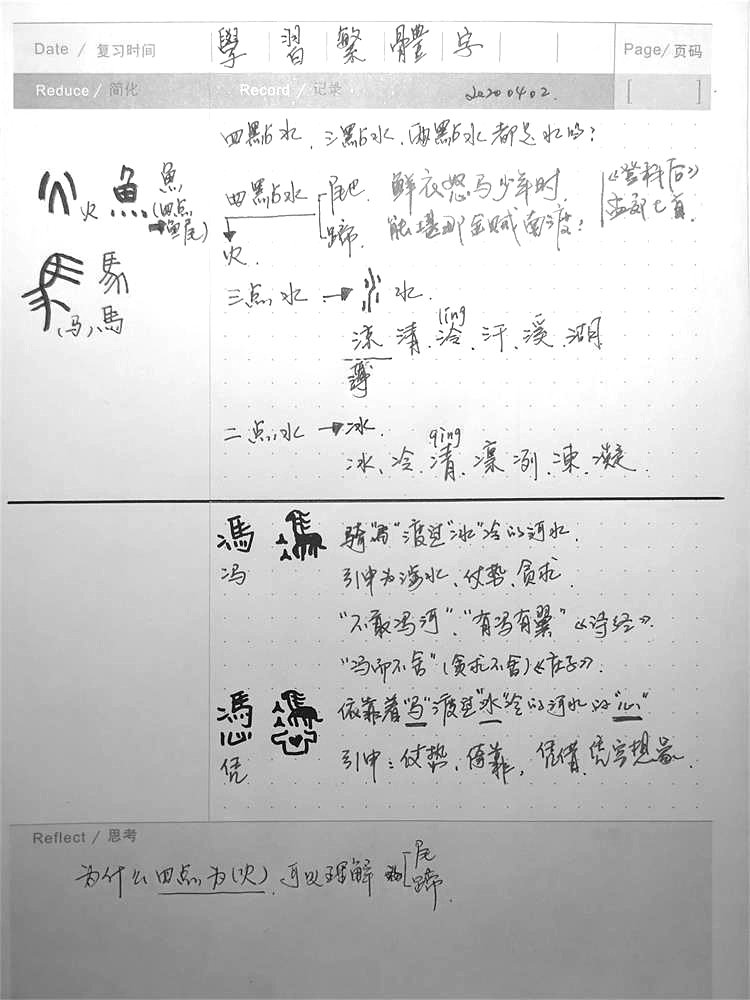 Date / 复习时间
學習繁體字
Page/ 页码
Reduce / 简化
Record / 记录
20200402.
[ ]
四點水、三點水、兩點水都是水吗?
火
魚
魚
(四点
➡鱼尾)
四點水
尾巴
蹄
火.
鲜衣怒马少年时
能堪那金贼南渡?
《登科后》
孟郊七首.
馬
(马)馬
三点水 ➡ 水.
ling
凉 清、泠、汗、溪、湖
薄
二点水 ➡ 冰.
qing
冰、冷、凊、凛冽、凍、凝
馮
冯
骑"马"渡过"冰"冷的河水.
引申为涉水、仗势、贪求
"不敢冯河"."有冯有翼"《诗经》.
"冯而不舍"(贪求不舍)《庄子》.
馮
心
凭
依靠着"马"渡过"冰"冷的河水的"心"
引申:仗势、倚靠,凭借、凭空想象
Reflect / 思考
为什么四点为(火)、可以理解
尾
蹄